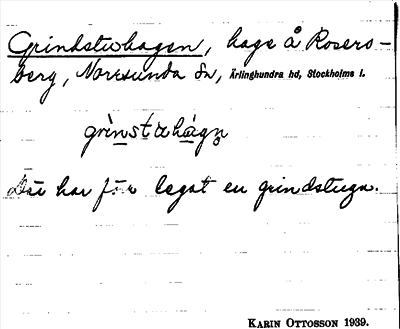 Grindstuhagen, hage å Rosers-
berg, Norrsunda sn, Ärlinghundra hd, Stockholms l.
grìnstɷhágn̥
Där har förr legat en grindstuga.
KARIN OTTOSSON 1939.